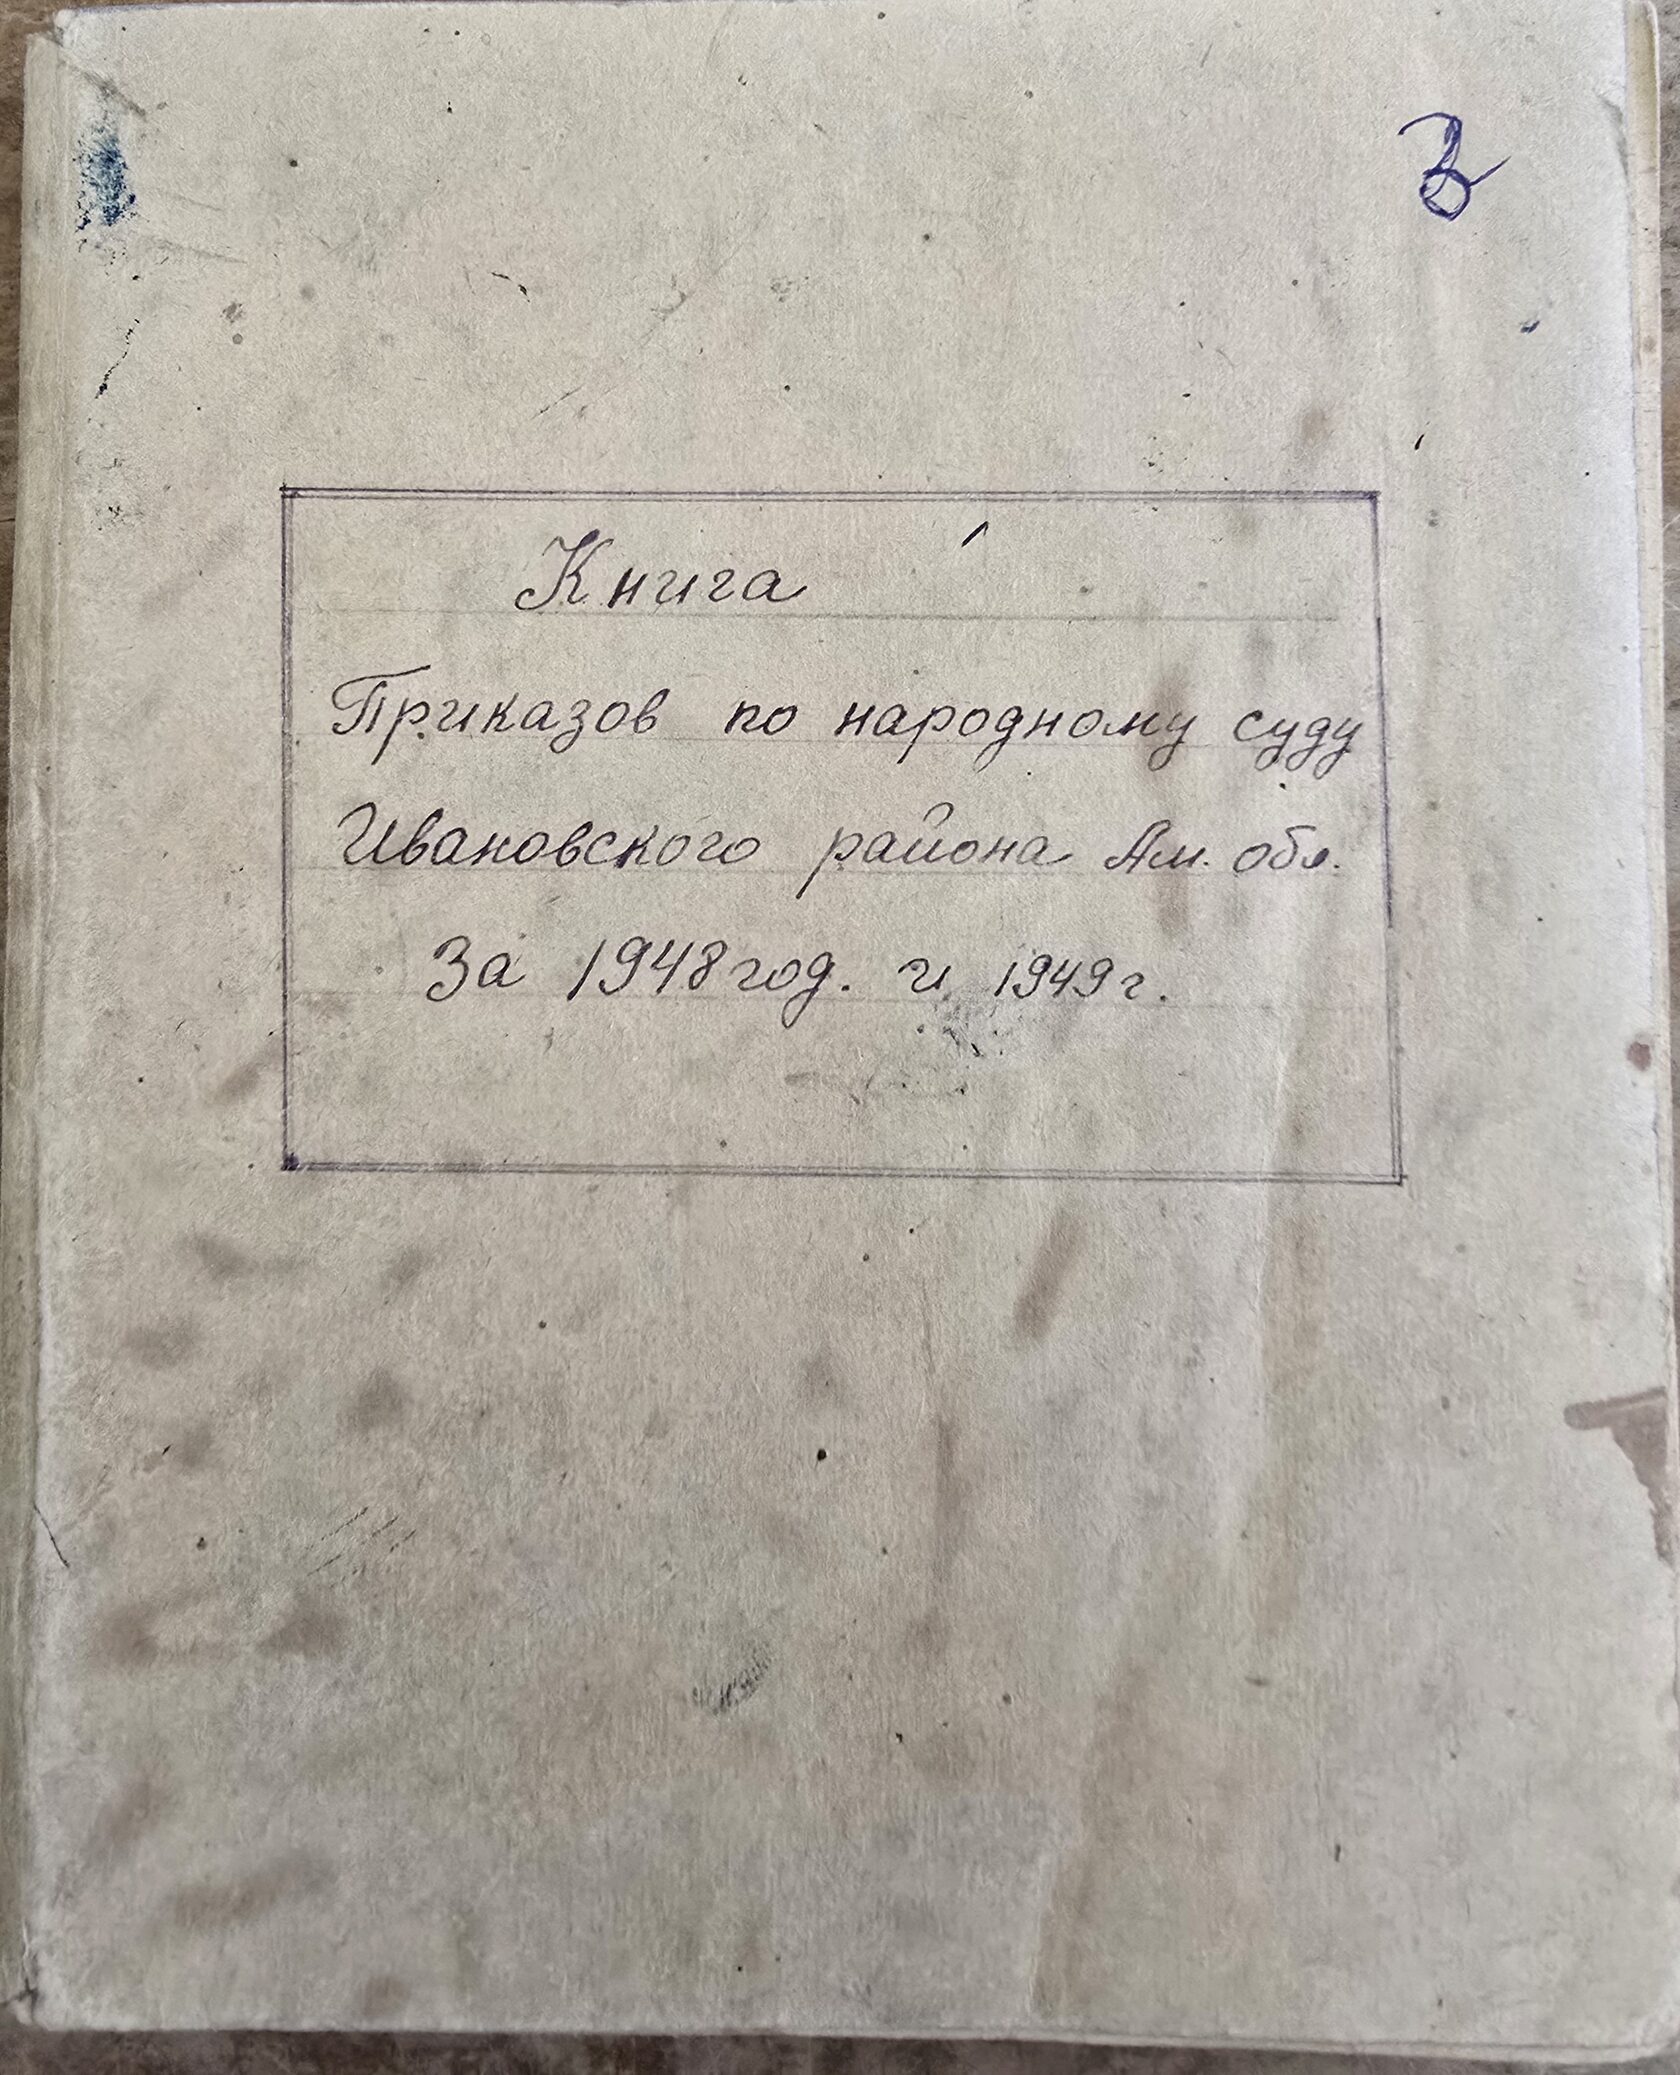 3
Книга
Приказов по народному суду
Ивановского района Ам. обл.
За 1948 год. и 1949 г.